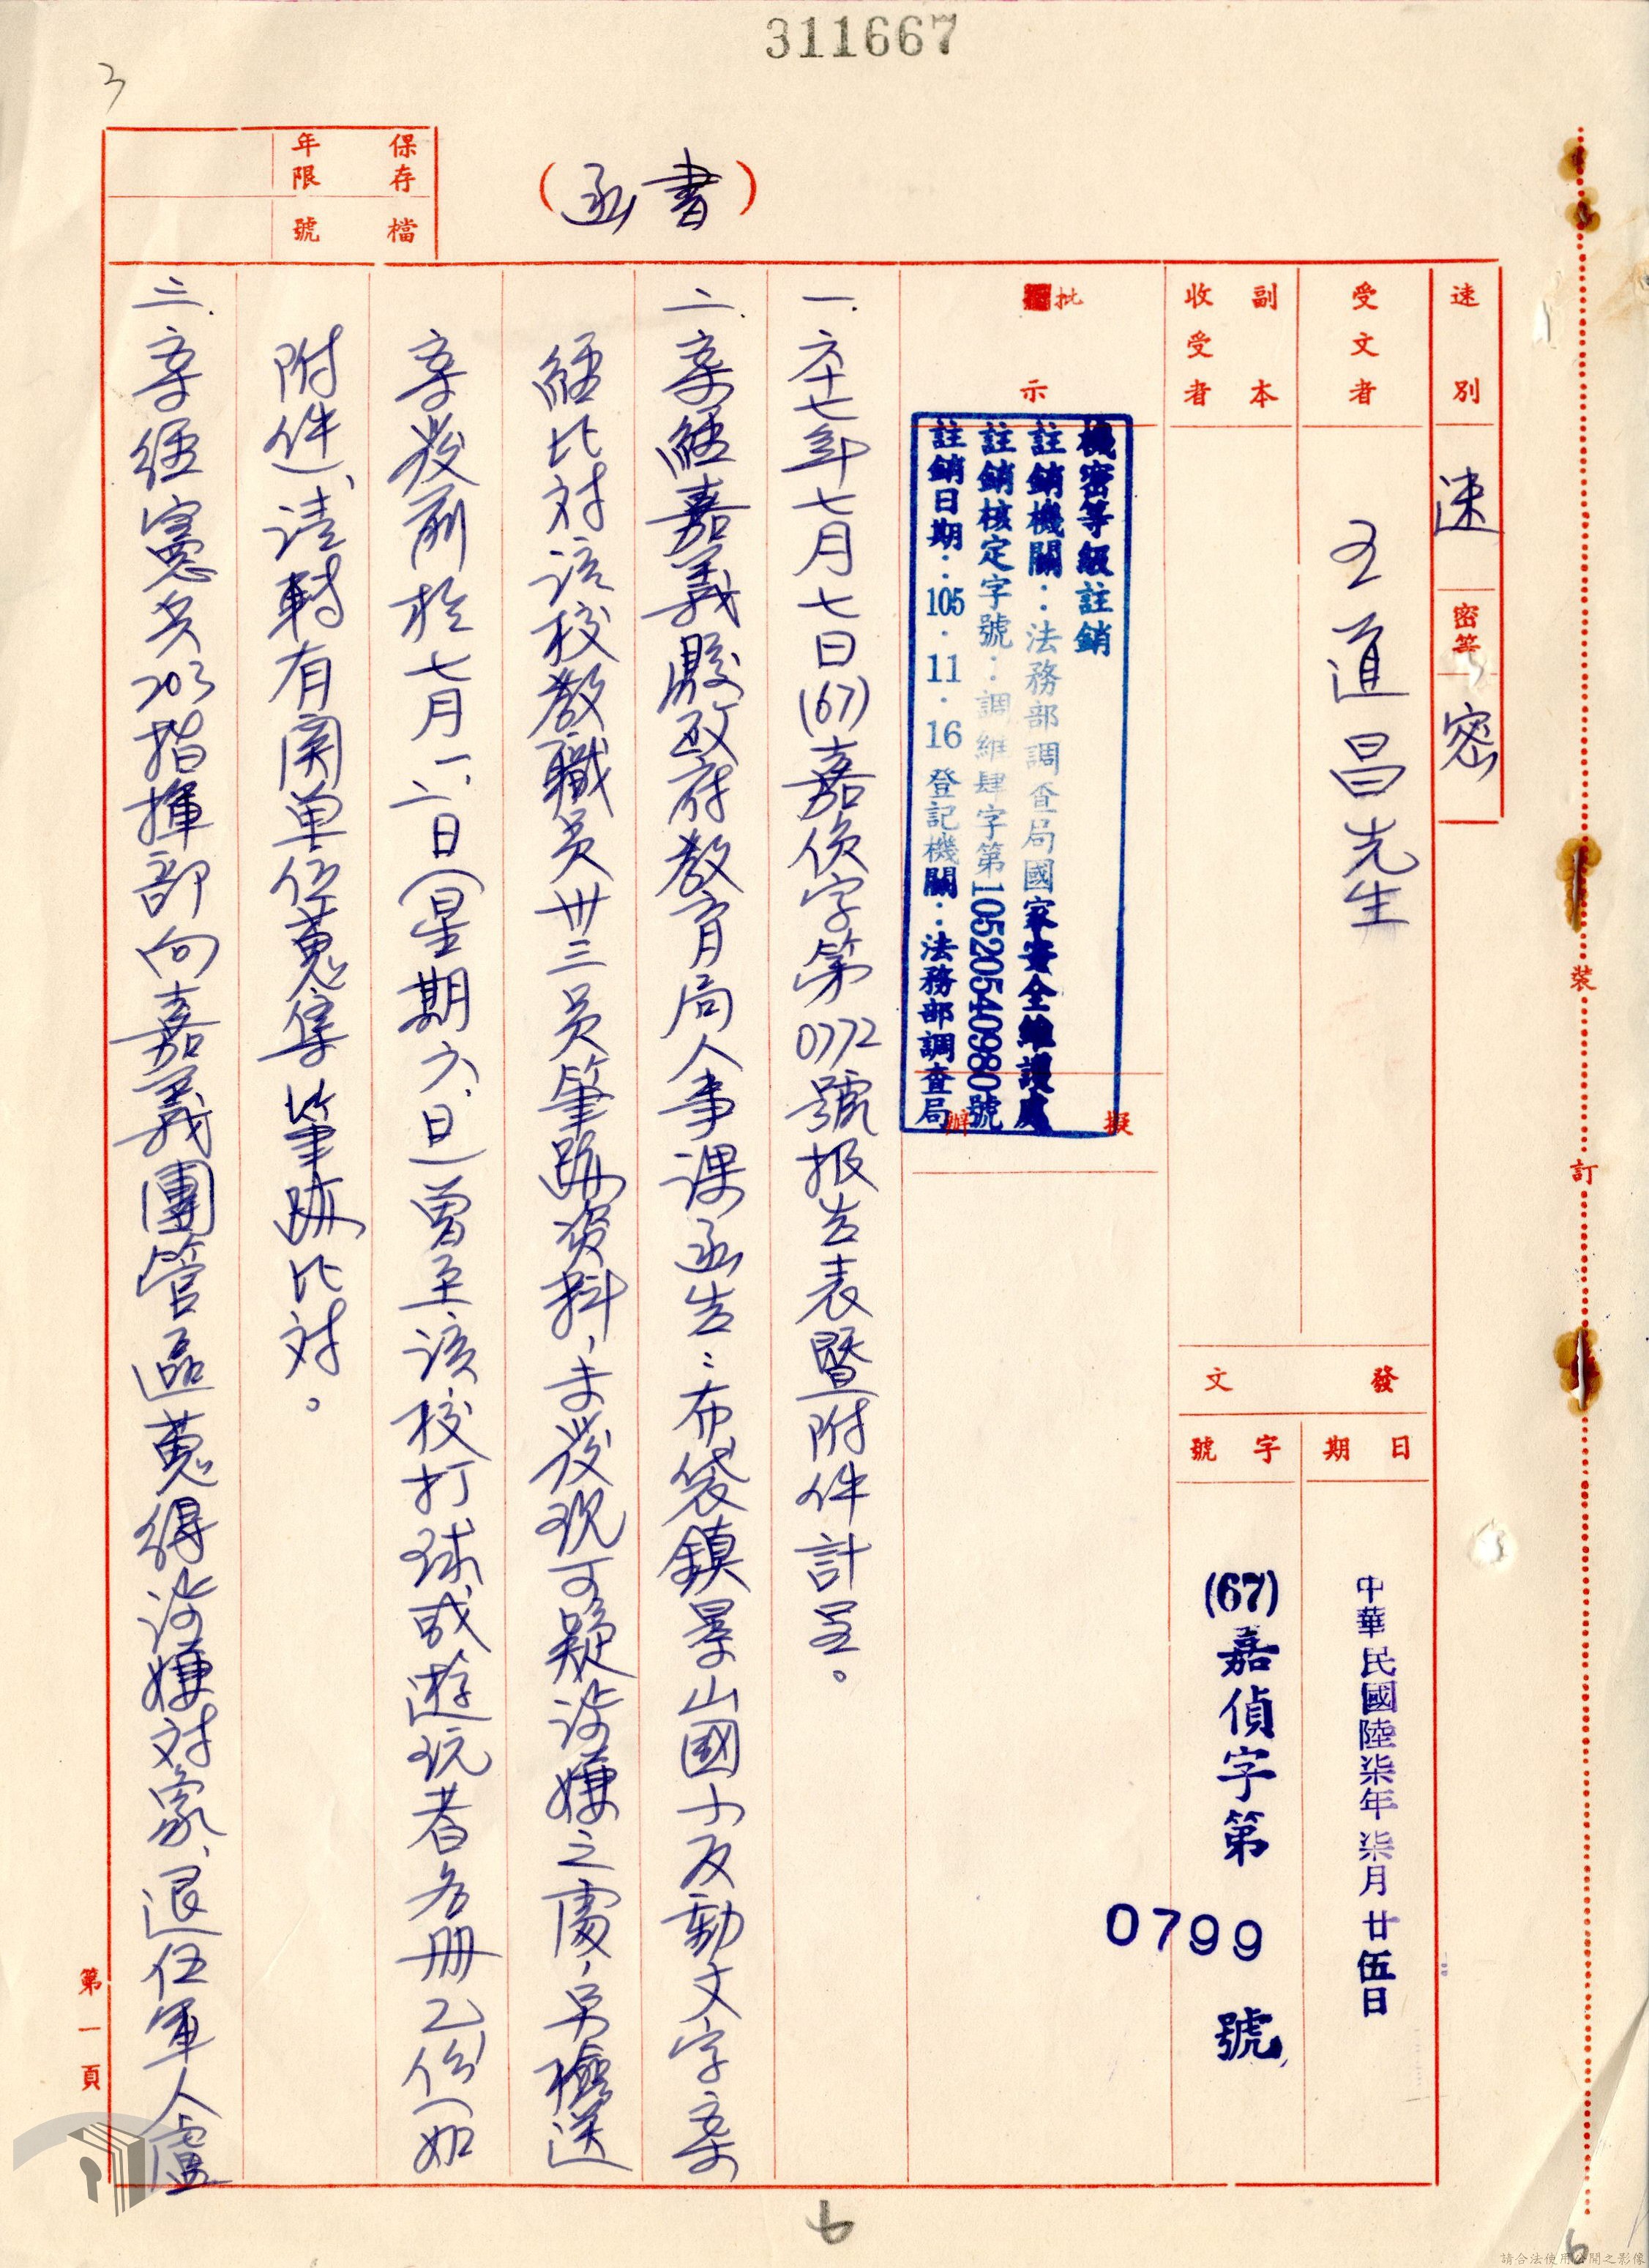 311667
3
(書函)
保存年限
檔號
速別
速
密等
密
受文者
王道昌先生
副本收受者
發文
日期
中華民國陸柒年柒月廿伍日
字號
(67)嘉偵字第0799號
批示
擬辦
機密等級註銷
註銷機關：法務部調查局國家安全維護處
註銷核定字號：調維肆字第10520540980號
註銷日期：105.11.16登記機關：法務部調查局
一.六十七年七月七日(67)嘉偵字第0772號报告表暨附件計呈。
二.案經嘉義縣政府教育局人事課函告：布袋鎮景山國小反動文字案
經比对該校教職员卅三员筆跡資料，未發現可疑涉嫌之處，另檢送
案發前於七月一、二日(星期六、日)曾至該校打球或遊玩者名册乙份(如
附件)，請轉有関单位蒐集筆跡比对。
三.案經憲兵203指揮部向嘉義團管區蒐得涉嫌对象、退伍軍人盧
裝
訂
第一頁
6
6
請合法使用公開之影像